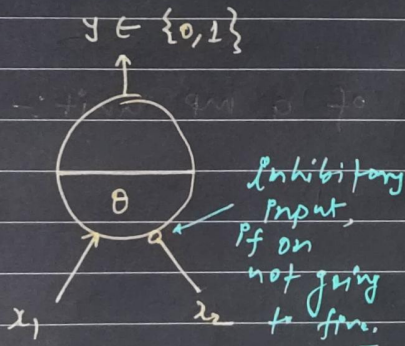 y ∈ {0,1}
θ
Inhibitory
input,
if on
not going
to fire.
x₁
x₂